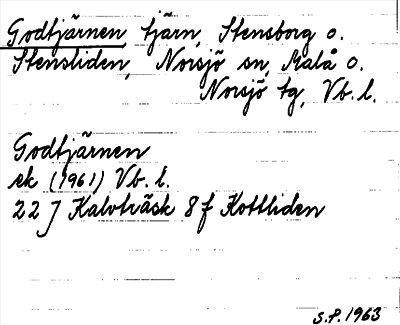 Godtjärnen tjärn, Stensborg o.
Stensliden, Norsjö sn, Malå o.
Norsjö tg, Vb. l.
Godtjärnen
ek (1961) Vb. l.
22 J Kalvträsk 8 f Kottliden
S.P. 1963